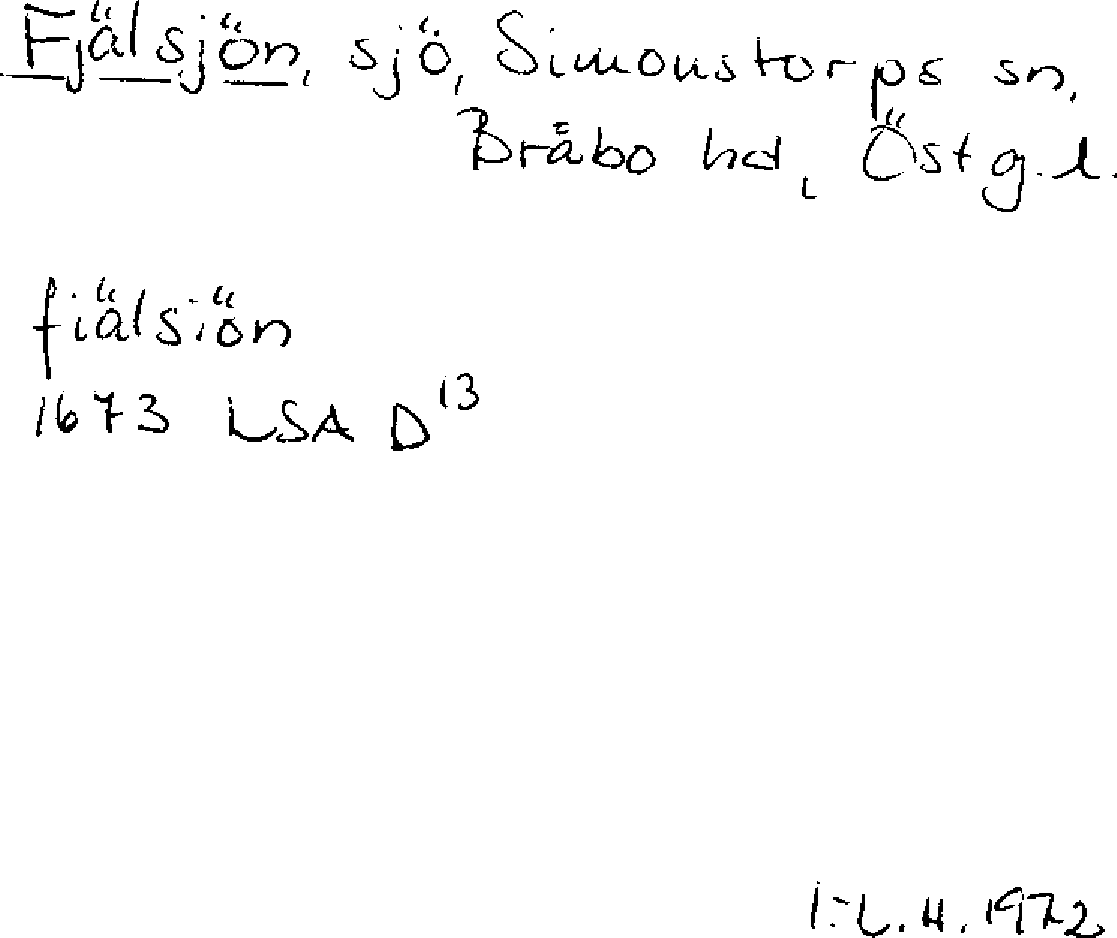 Fjälsjön, sjö, Simonstorps sn,
Bråbo hd, Östg.l.
fiälsiön
1673 LSA D¹³
I-L.H. 1972